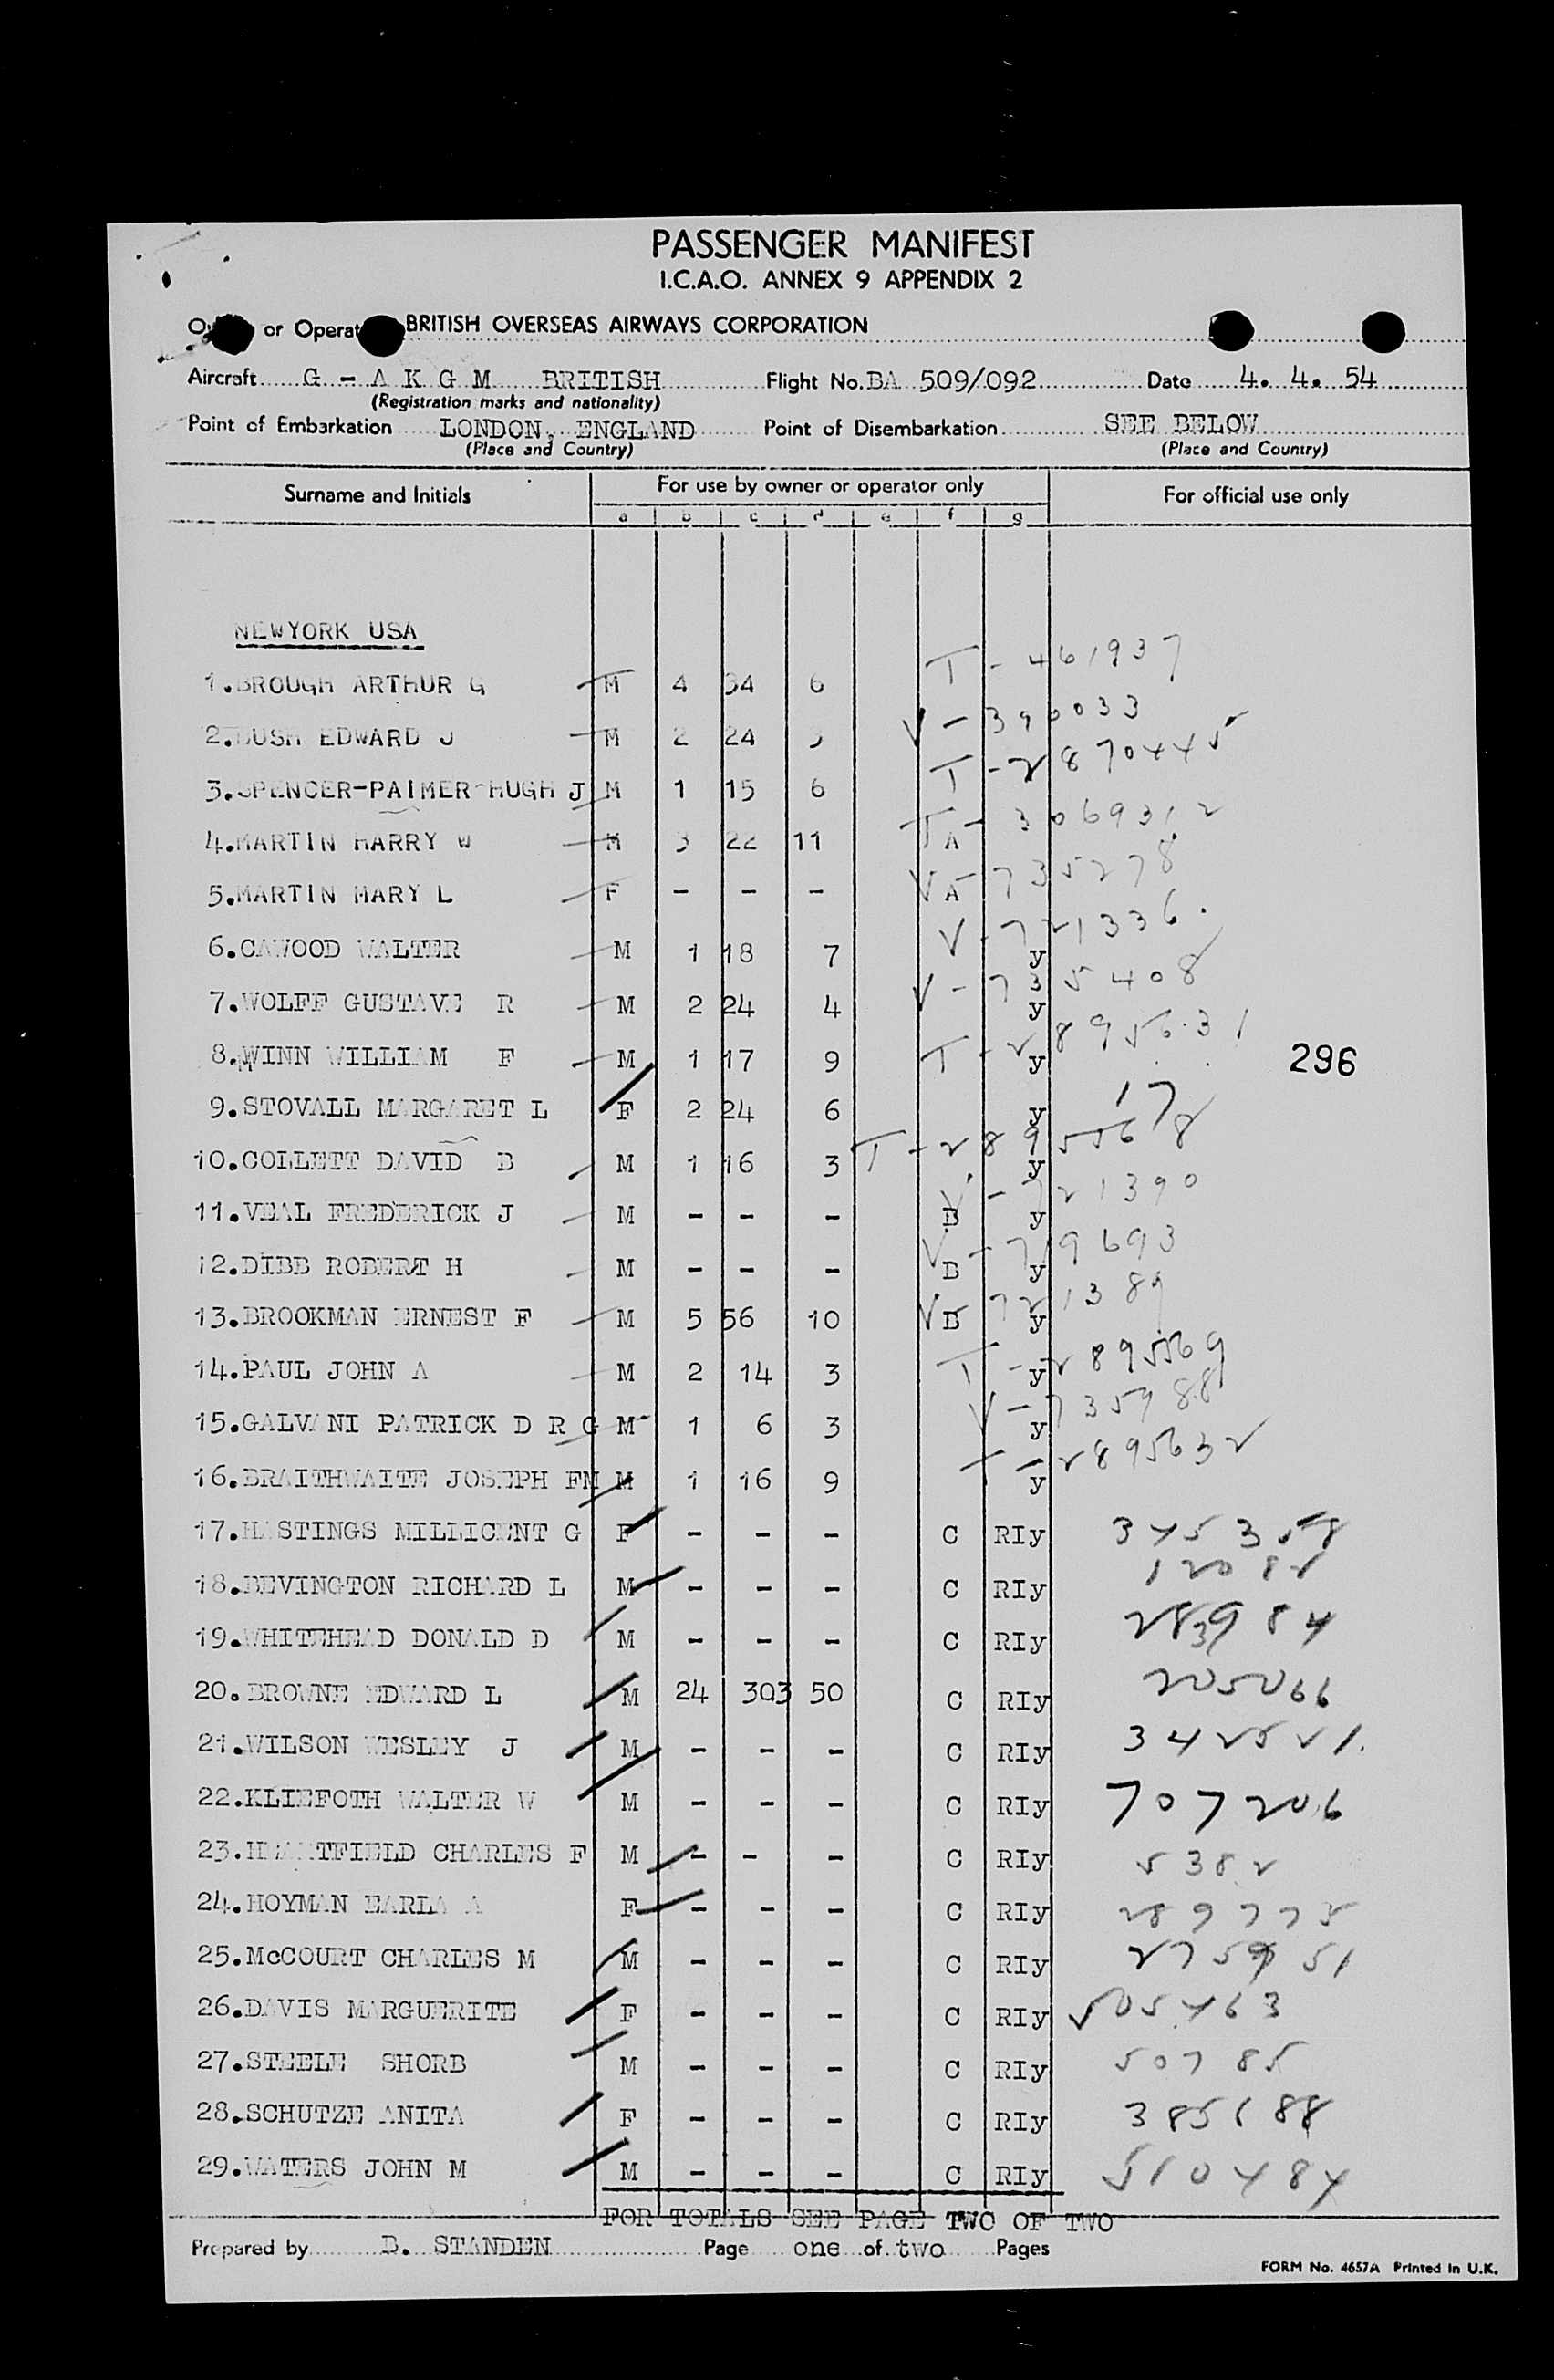 PASSENGER MANIFEST
I.C.A.O. ANNEX 9 APPENDIX 2
or Operat BRITISH OVERSEAS AIRWAYS CORPORATION
Aircraft G - A K G M BRITISH Flight No. BA 509/092 Date 4. 4. 54
(Registration marks and nationality)
Point of Embarkation LONDON, ENGLAND Point of Disembarkation SEE BELOW
(Place and Country) (Place and Country)
Surname and Initials For use by owner or operator only For official use only
a b c d e f g
NEWYORK USA
1. BROUGH ARTHUR G M 4 34 6 T - 461937
2. BUSH EDWARD J M 2 24 V - 390033
3. SPENCER-PALMER HUGH J M 1 15 6 T - 2870445
4. MARTIN HARRY W M 3 22 11 A T - 3069312
5. MARTIN MARY L F - - - A V - 735278
6. CAWOOD WALTER M 1 18 7 y V - 721336
7. WOLFF GUSTAVE R M 2 24 4 y V - 735408
8. WINN WILLIAM F M 1 17 9 y T - 2895631
296
9. STOVALL MARGARET L F 2 24 6 y 17
10. COLLETT DAVID B M 1 16 3 y T - 2895568
11. VEAL FREDERICK J M - - - B y V - 721390
12. DIBB ROBERT H M - - - B y V - 719693
13. BROOKMAN ERNEST F M 5 56 10 B y V - 721389
14. PAUL JOHN A M 2 14 3 y T - 2895569
15. GALVANI PATRICK D R G M 1 6 3 y V - 735988
16. BRAITHWAITE JOSEPH FM M 1 16 9 y T - 2895632
17. HASTINGS MILLICENT G F - - - C RIy 345358
18. BEVINGTON RICHARD L M - - - C RIy 12082
19. WHITEHEAD DONALD D M - - - C RIy 283984
20. BROWNE EDWARD L M 24 303 50 C RIy 205066
21. WILSON WESLEY J M - - - C RIy 342521.
22. KLIEFOTH WALTER W M - - - C RIy 707206
23. HEARTFIELD CHARLES F M - - - C RIy 5382
24. HOYMAN EARLA A F - - - C RIy 289775
25. McCOURT CHARLES M M - - - C RIy 275951
26. DAVIS MARGUERITE F - - - C RIy 505463
27. STEELE SHORB M - - - C RIy 50785
28. SCHUTZE ANITA F - - - C RIy 385188
29. WATERS JOHN M M - - - C RIy 510484
FOR TOTALS SEE PAGE TWO OF TWO
Prepared by B. STANDEN Page one of two Pages
FORM No. 4657A Printed in U.K.